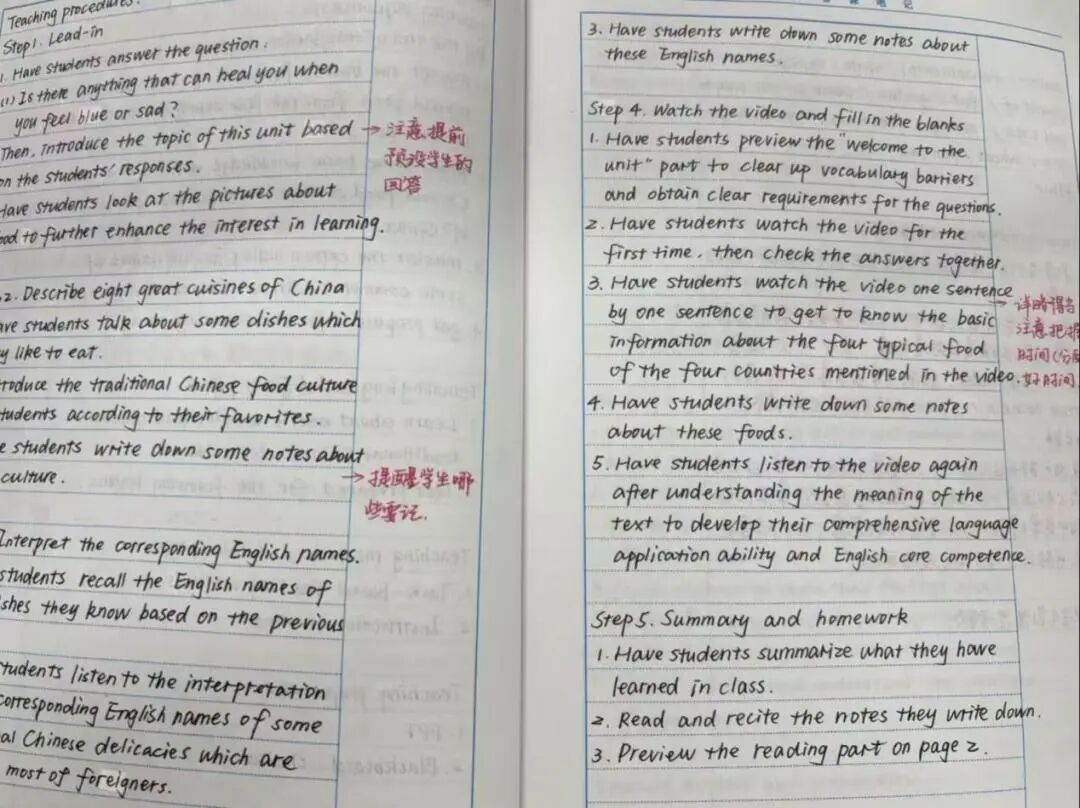 Teaching procedures:
Step1. Lead-in
1. Have students answer the question.
(1) Is there anything that can heal you when
you feel blue or sad?
Then, introduce the topic of this unit based
on the students' responses.
Have students look at the pictures about
to further enhance the interest in learning.
2. Describe eight great cuisines of China
students talk about some dishes which
like to eat.
the traditional Chinese food culture
students according to their favorites.
students write down some notes about
culture.
Interpret the corresponding English names.
students recall the English names of
they know based on the previous
students listen to the interpretation
corresponding English names of some
Chinese delicacies which are
most of foreigners.
→ 注意提前
预设学生的
回答
→ 提醒学生哪
些要记.
笔记
3. Have students write down some notes about
these English names.
Step 4. Watch the video and fill in the blanks
1. Have students preview the "welcome to the
unit" part to clear up vocabulary barriers
and obtain clear requirements for the questions.
2. Have students watch the video for the
first time, then check the answers together.
3. Have students watch the video one sentence
by one sentence to get to know the basic
information about the four typical food
of the four countries mentioned in the video.
4. Have students write down some notes
about these foods.
5. Have students listen to the video again
after understanding the meaning of the
text to develop their comprehensive language
application ability and English core competence.
Step 5. Summary and homework
1. Have students summarize what they have
learned in class.
2. Read and recite the notes they write down.
3. Preview the reading part on page 2.
→ 详略得当
注意把握
时间(分配
好时间